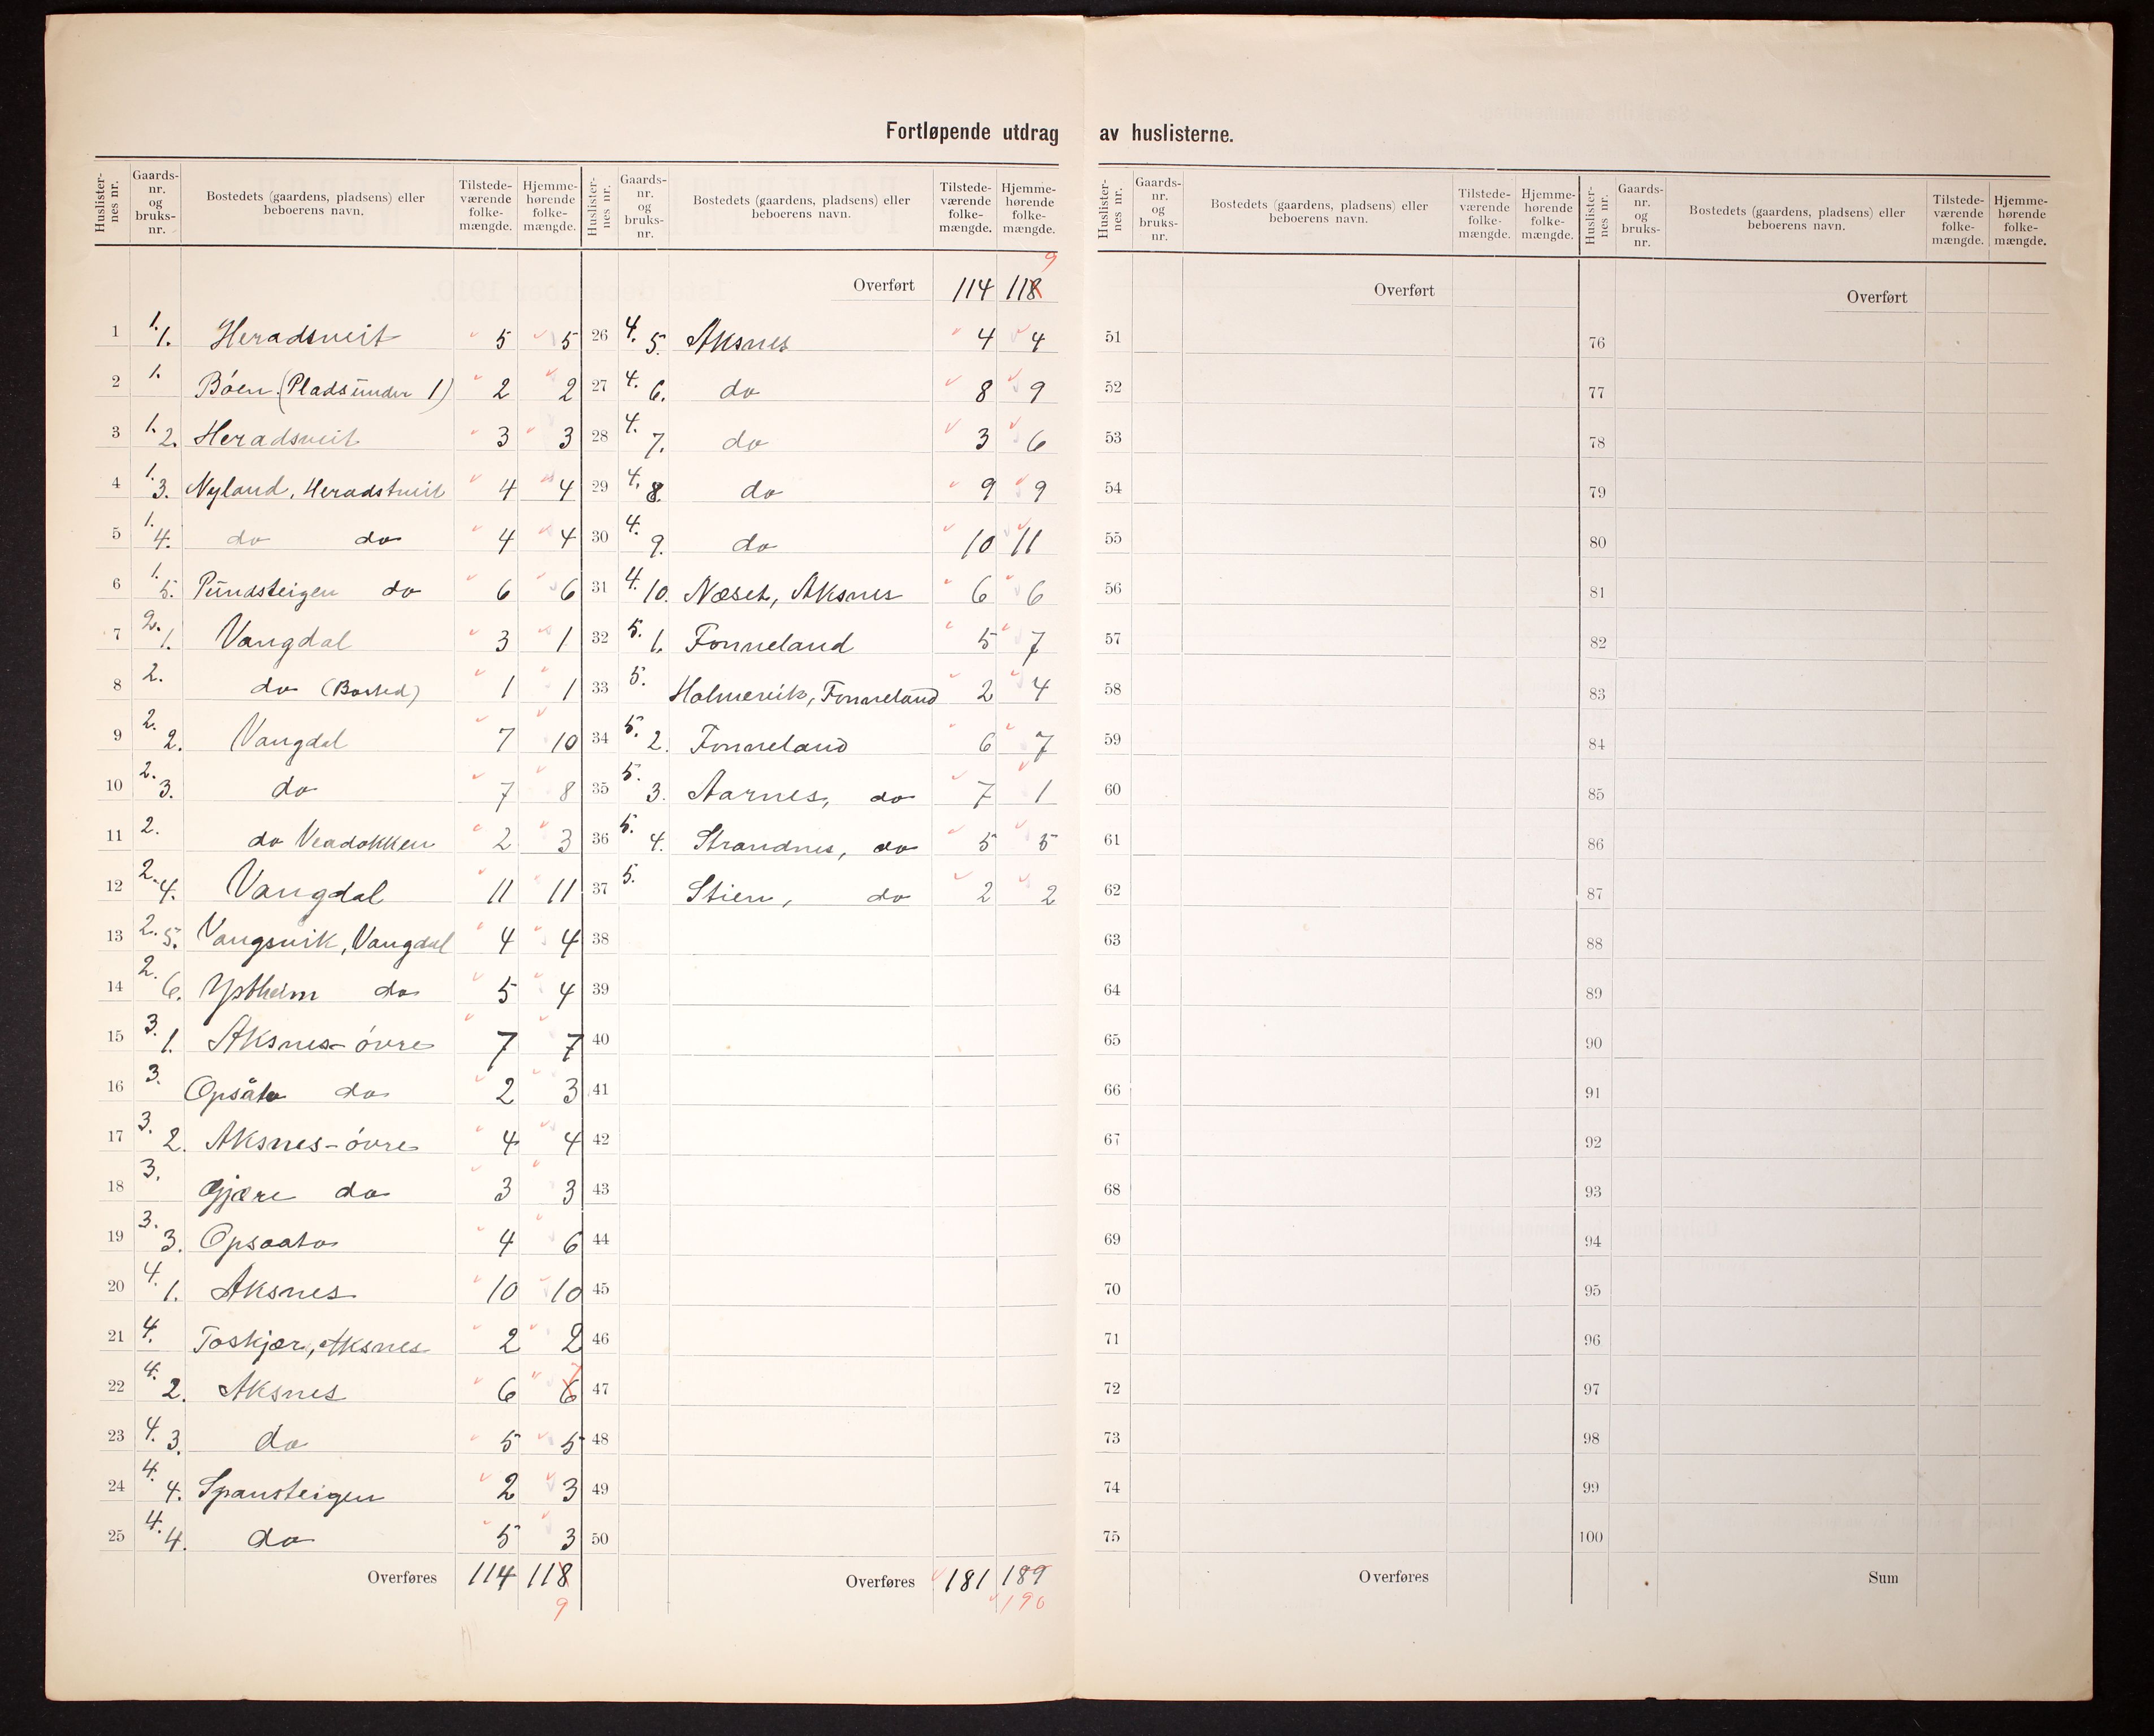 Fortløpende utdrag av huslisterne.
Huslister-nes nr. Gaards-nr. og bruks-nr. Bostedets (gaardens, pladsens) eller beboerens navn. Tilstede-værende folke-mængde. Hjemme-hørende folke-mængde.
1 1. 1. Heradsveit 5 5
2 1. Bóen (Plads under 1) 2 2
3 1. 2. Heradsveit 3 3
4 1. 3. Nyland, Heradstveit 4 4
5 1. 4. do do 4 4
6 1. 5. Pundsteigen do 6 6
7 2. 1. Vangdal 3 1
8 2. do (Bosted) 1 1
9 2. 2. Vangdal 7 10
10 2. 3. do 7 8
11 2. do Veadokken 2 3
12 2. 4. Vangdal 11 11
13 2. 5. Vangsvik, Vangdal 4 4
14 2. 6. Ystheim do 5 4
15 3. 1. Aksnes-óvre 7 7
16 3. Opsåto do 2 3
17 3. 2. Aksnes-óvre 4 4
18 3. Gjære do 3 3
19 3. 3. Opsaato 4 6
20 4. 1. Aksnes 10 10
21 4. Toskjær, Aksnes 2 2
22 4. 2. Aksnes 6 6 7
23 4. 3. do 5 5
24 4. 4. Spansteigen 2 3
25 4. 4. do 5 3
Overføres 114 118
9
Huslister-nes nr. Gaards-nr. og bruks-nr. Bostedets (gaardens, pladsens) eller beboerens navn. Tilstede-værende folke-mængde. Hjemme-hørende folke-mængde.
9
Overført 114 118
26 4. 5. Aksnes 4 4
27 4. 6. do 8 9
28 4. 7. do 3 6
29 4. 8. do 9 9
30 4. 9. do 10 11
31 4. 10. Næset, Aksnes 6 6
32 5. 1. Fonneland 5 7
33 5. Holmevik, Fonneland 2 4
34 5. 2. Fonneland 6 7
35 5. 3. Aarnes, do 7 1
36 5. 4. Strandnes, do 5 5
37 5. Stien, do 2 2
38
39
40
41
42
43
44
45
46
47
48
49
50
Overføres 181 189
190
Huslister-nes nr. Gaards-nr. og bruks-nr. Bostedets (gaardens, pladsens) eller beboerens navn. Tilstede-værende folke-mængde. Hjemme-hørende folke-mængde.
Overført
51
52
53
54
55
56
57
58
59
60
61
62
63
64
65
66
67
68
69
70
71
72
73
74
75
Overføres
Huslister-nes nr. Gaards-nr. og bruks-nr. Bostedets (gaardens, pladsens) eller beboerens navn. Tilstede-værende folke-mængde. Hjemme-hørende folke-mængde.
Overført
76
77
78
79
80
81
82
83
84
85
86
87
88
89
90
91
92
93
94
95
96
97
98
99
100
Sum